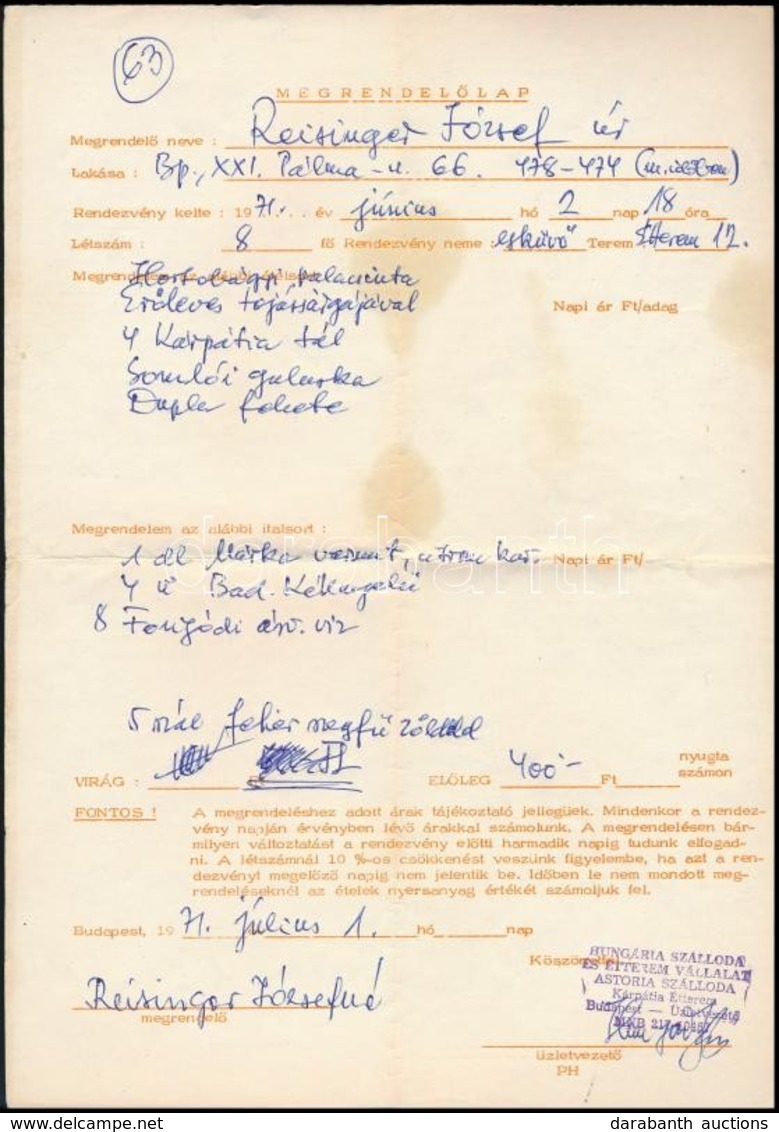 63
MEGRENDELŐLAP
Megrendelő neve : Reisinger József úr
Lakása : Bp., XXI. Pálma-u. 66. 478-474
Rendezvény kelte : 1971. év június hó 2 nap 18 óra
Létszám : 8 fő Rendezvény neme : esküvő Terem 12.
Hortobágyi palacsinta
Erőleves tojássárgájával
Napi ár Ft/adag
4 Kárpátia tál
Somlói galuska
Dupla fekete
Megrendelem az alábbi italsort :
1 dl Márka vermut, Napi ár Ft/
4 ü Bad. Kéknyelű
8 Fonyódi ásv. víz
5 szál fehér szegfű zölddel
VIRÁG : ELŐLEG 400.- Ft nyugta számon
FONTOS ! A megrendeléshez adott árak tájékoztató jellegüek. Mindenkor a rendez-
vény napján érvényben lévő árakkal számolunk. A megrendelésen bár-
milyen változtatást a rendezvény előtti harmadik napig tudunk elfogad-
ni. A létszámnál 10 %-os csökkenést veszünk figyelembe, ha azt a ren-
dezvényt megelőző napig nem jelentik be. Időben le nem mondott meg-
rendeléseknél az ételek nyersanyag értékét számoljuk fel.
Budapest, 1971. július 1. hó nap
HUNGÁRIA SZÁLLODA
ÉS ÉTTEREM VÁLLALAT
ASTORIA SZÁLLODA
Kárpátia Étterem
Budapest — Üzletvezető
Reisinger Józsefné
megrendelő
üzletvezető
PH
darabanth
darabanth auctions